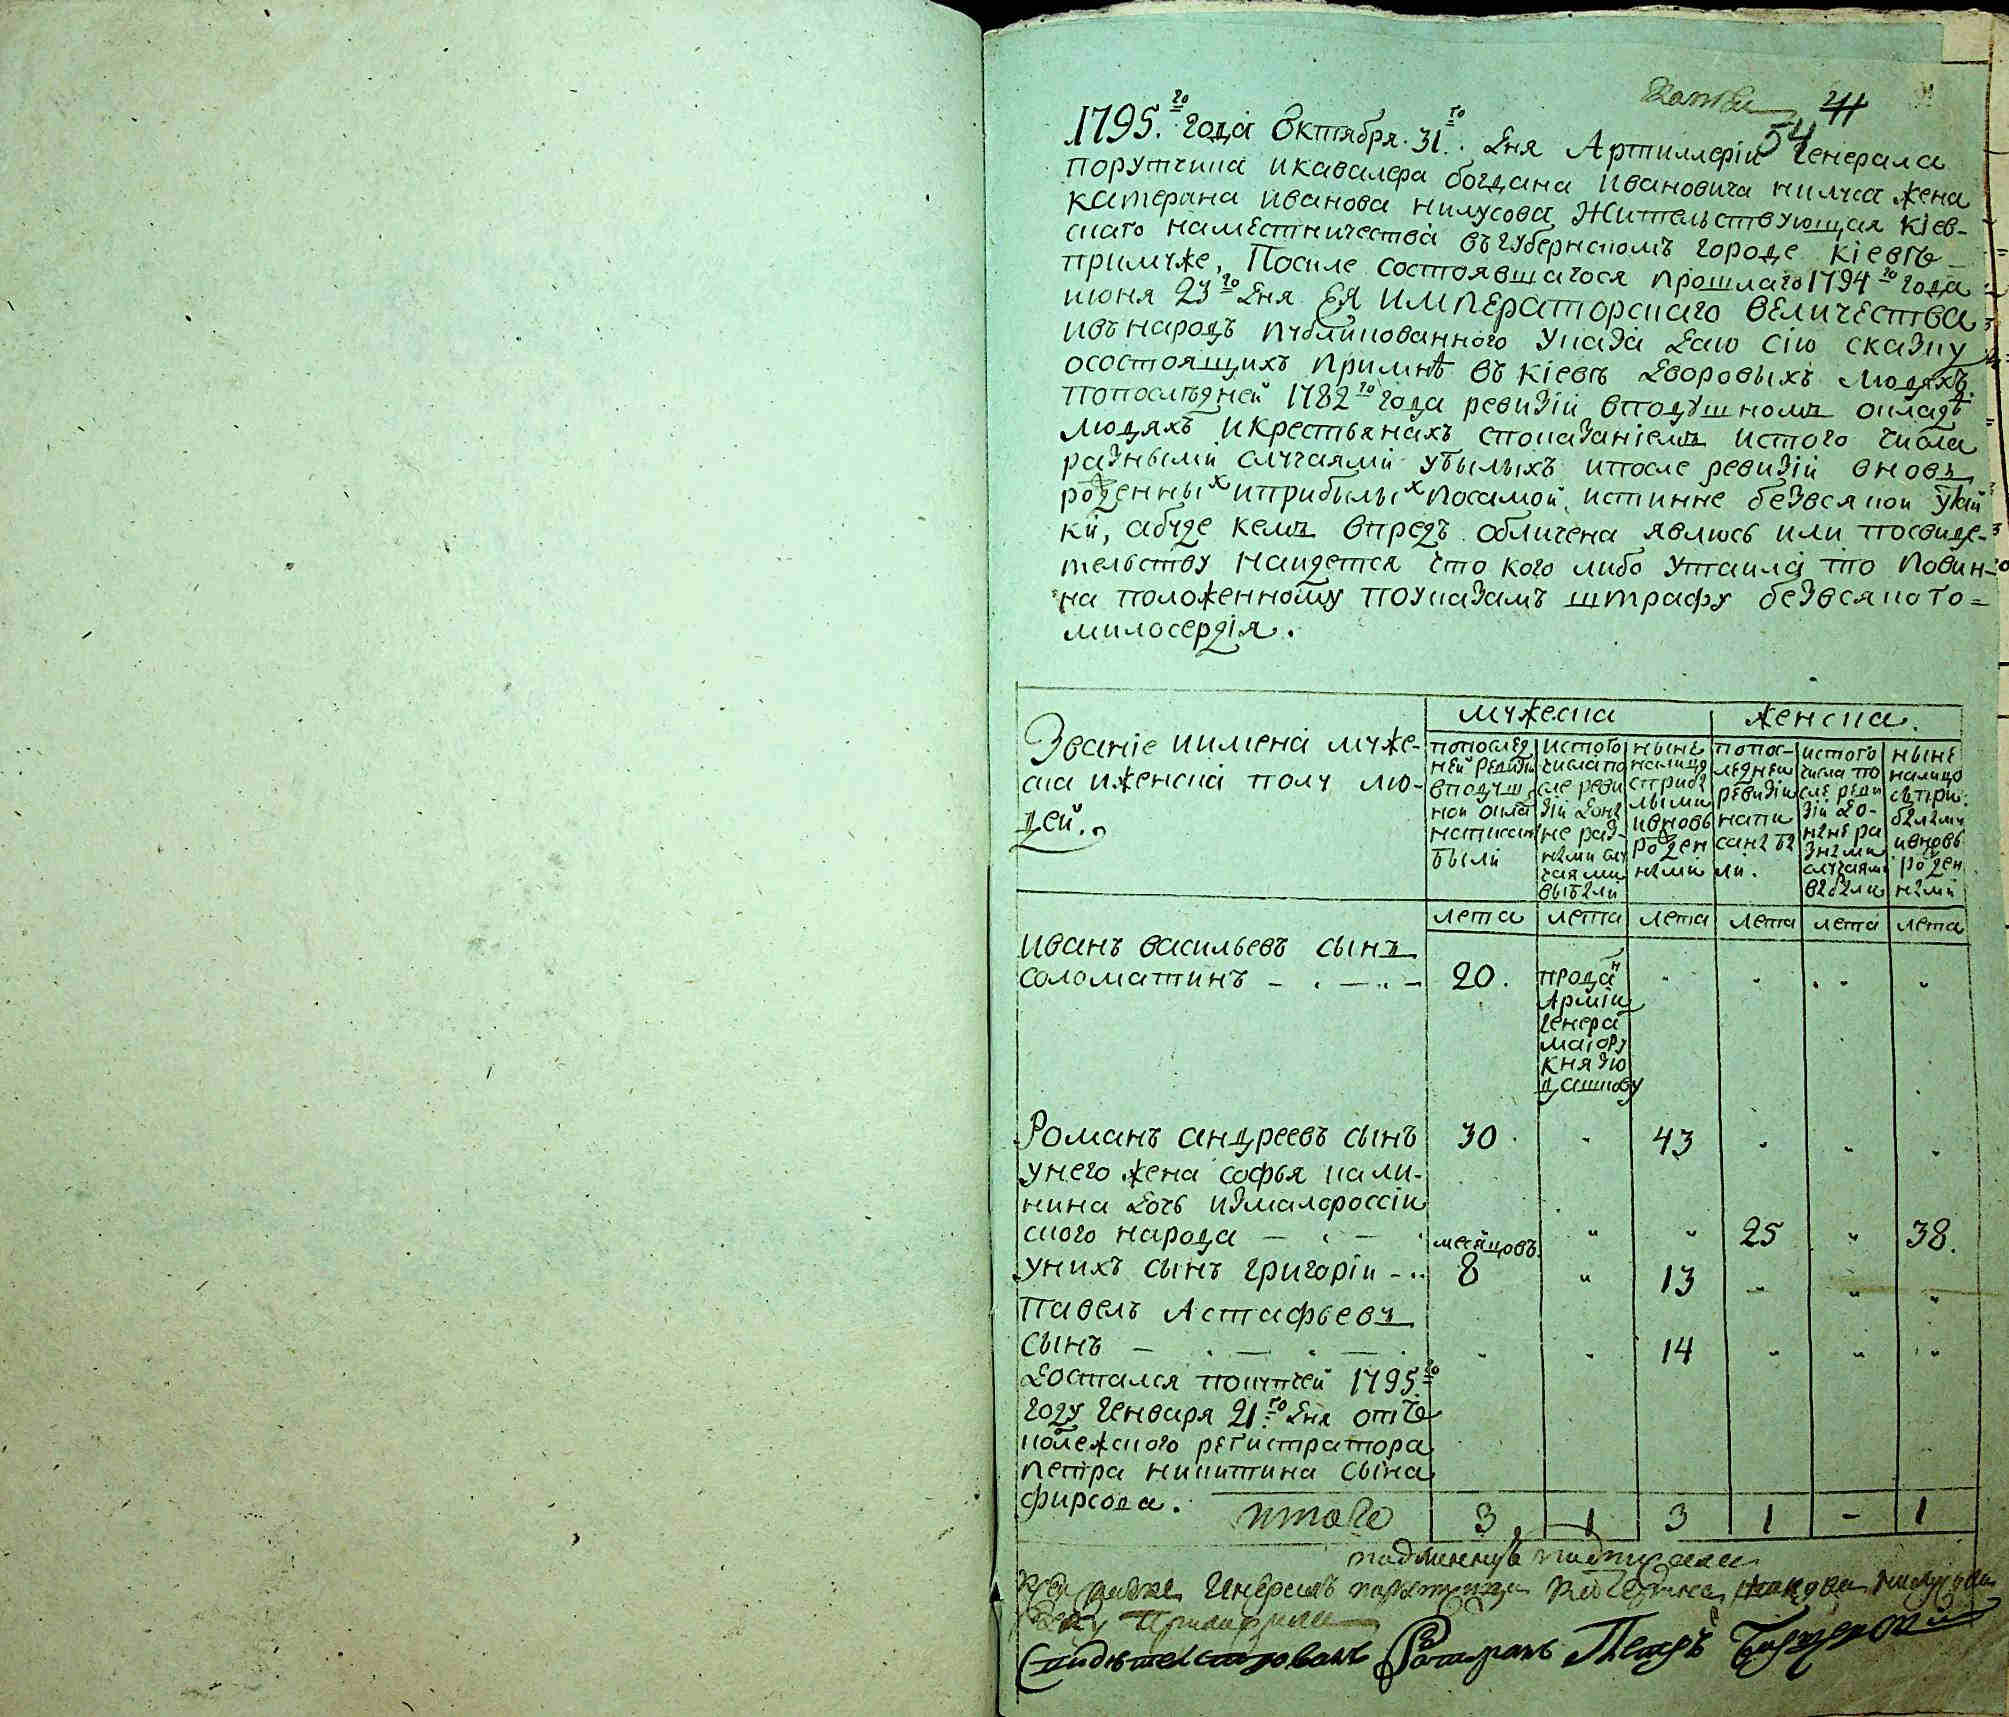 Копiя 41
54
1795.го года Октября 31.го дня Артиллерiи генерала
порутчика икавалера богдана ивановича нилуса жена
катерина иванова нилусова жительствующая кiев-
скаго наместничества въгубернскомъ городе кiевѣ
примуже, Посиле состоявшагося прошлаго 1794го года
июня 23го дня ЕЯ ИМПЕРАТОРСКАГО ВЕЛИЧЕСТВА
ивънародъ публикованного указа даю сiю сказку
осостоящихъ примнѣ въ кiевѣ дворовыхъ людяхъ
попоследней 1782го года ревизiи вподушномъ окладѣ
людяхъ икрестьянахъ споказанiемъ истого числа
разными случаями убылыхъ ипосле ревизiи вновь
рожденныхъ иприбылыхъ посамой истинне безвсякой утай
ки, абуде кемъ впредъ обличена явлюсь или посвиде-
тельству найдется что кого либо утаила то повин-
на положенному поуказамъ штрафу безвсякого=
милосердiя.
мужеска женска.
Званiе иимена муже-
ска иженска полу лю-
дей.
попослед
ней ревизiи
вподуш
ной окла
написаны
были
истого
числа по
сле реви
зiи доны
не раз-
ными слу
чаями
выбыли
ныне
налицо
сприбы
лыми
ивновь
рожден
ными
попос-
ледней
ревизiи
напи
саны бы
ли.
истого
числа по
сле реви
зiи до-
ныне ра
зными
случаями
выбыли
ныне
налицо
съпри.
былыми
ивновь
рожден
ными
лета лета лета лета лета лета
иванъ васильевъ сынъ
соломатинъ 20. проданъ
Армiи
генера
маiору
князю
дашкову
Романъ андреевъ сынъ 30 43
унего жена софья кали-
нина дочь измалороссiй
ского народа 25 38.
унихъ сынъ григорiй месяцовъ 8 13
павелъ Астафьевъ
сынъ 14
достался покупкей 1795го
году генваря 21го дня отъ ко
колежского регистратора
петра никитина сына
фирсова.
итого 3 1 3 1 - 1
подлинную подписали
Свидѣтельствовалъ Ротмистръ Петръ